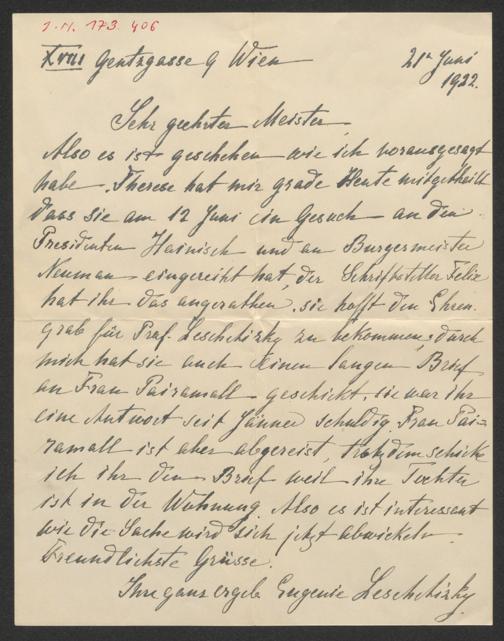 I.N. 173.406
XVIII Gentzgasse 9 Wien 21ten Juni
1922.
Sehr geehrter Meister,
Also es ist geschehen wie ich vorausgesagt
habe. Therese hat mir grade Heute mitgetheilt
dass sie am 12 Juni ein Gesuch an den
Presidenten Hainisch und an Burgermeister
Neuman eingereiht hat, der Schriftsteller Felix
hat ihr das angerathen. sie hofft den Ehren-
grab für Prof. Leschetizky zu bekommen, durch
mich hat sie auch einen langen Brief
an Frau Pairamall geschickt. sie war ihr
eine Antwort seit Jänner schuldig. Frau Pai=
ramall ist aber abgereist, trotzdem schicke
ich ihr den Brief weil ihre Tochter
ist in der Wohnung. Also es ist interessant
wie die Sache wird sich jetzt abwickeln.
Freundlichste Grüsse.
Ihre ganz ergeb. Eugenie Leschetizky